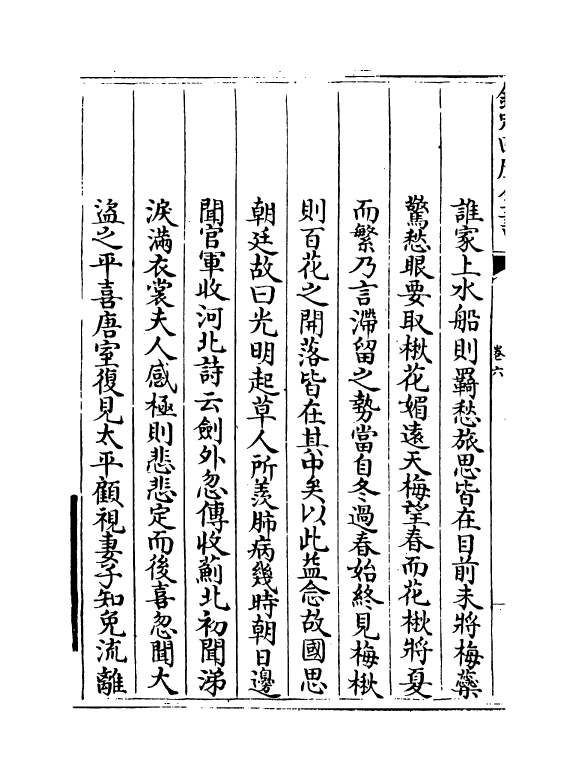 欽定四庫全書
卷六
誰家上水船則羇愁旅思皆在目前未將梅蘂
驚愁眼要取楸花媚遠天梅望春而花楸將夏
而繁乃言滯留之勢當自冬過春始終見梅楸
則百花之開落皆在其中矣以此益念故國思
朝廷故曰光明起草人所羡肺病幾時朝日邊
聞官軍收河北詩云劍外忽傳收薊北初聞涕
淚滿衣裳夫人感極則悲悲定而後喜忽聞大
盜之平喜唐室復見太平顧視妻子知免流離